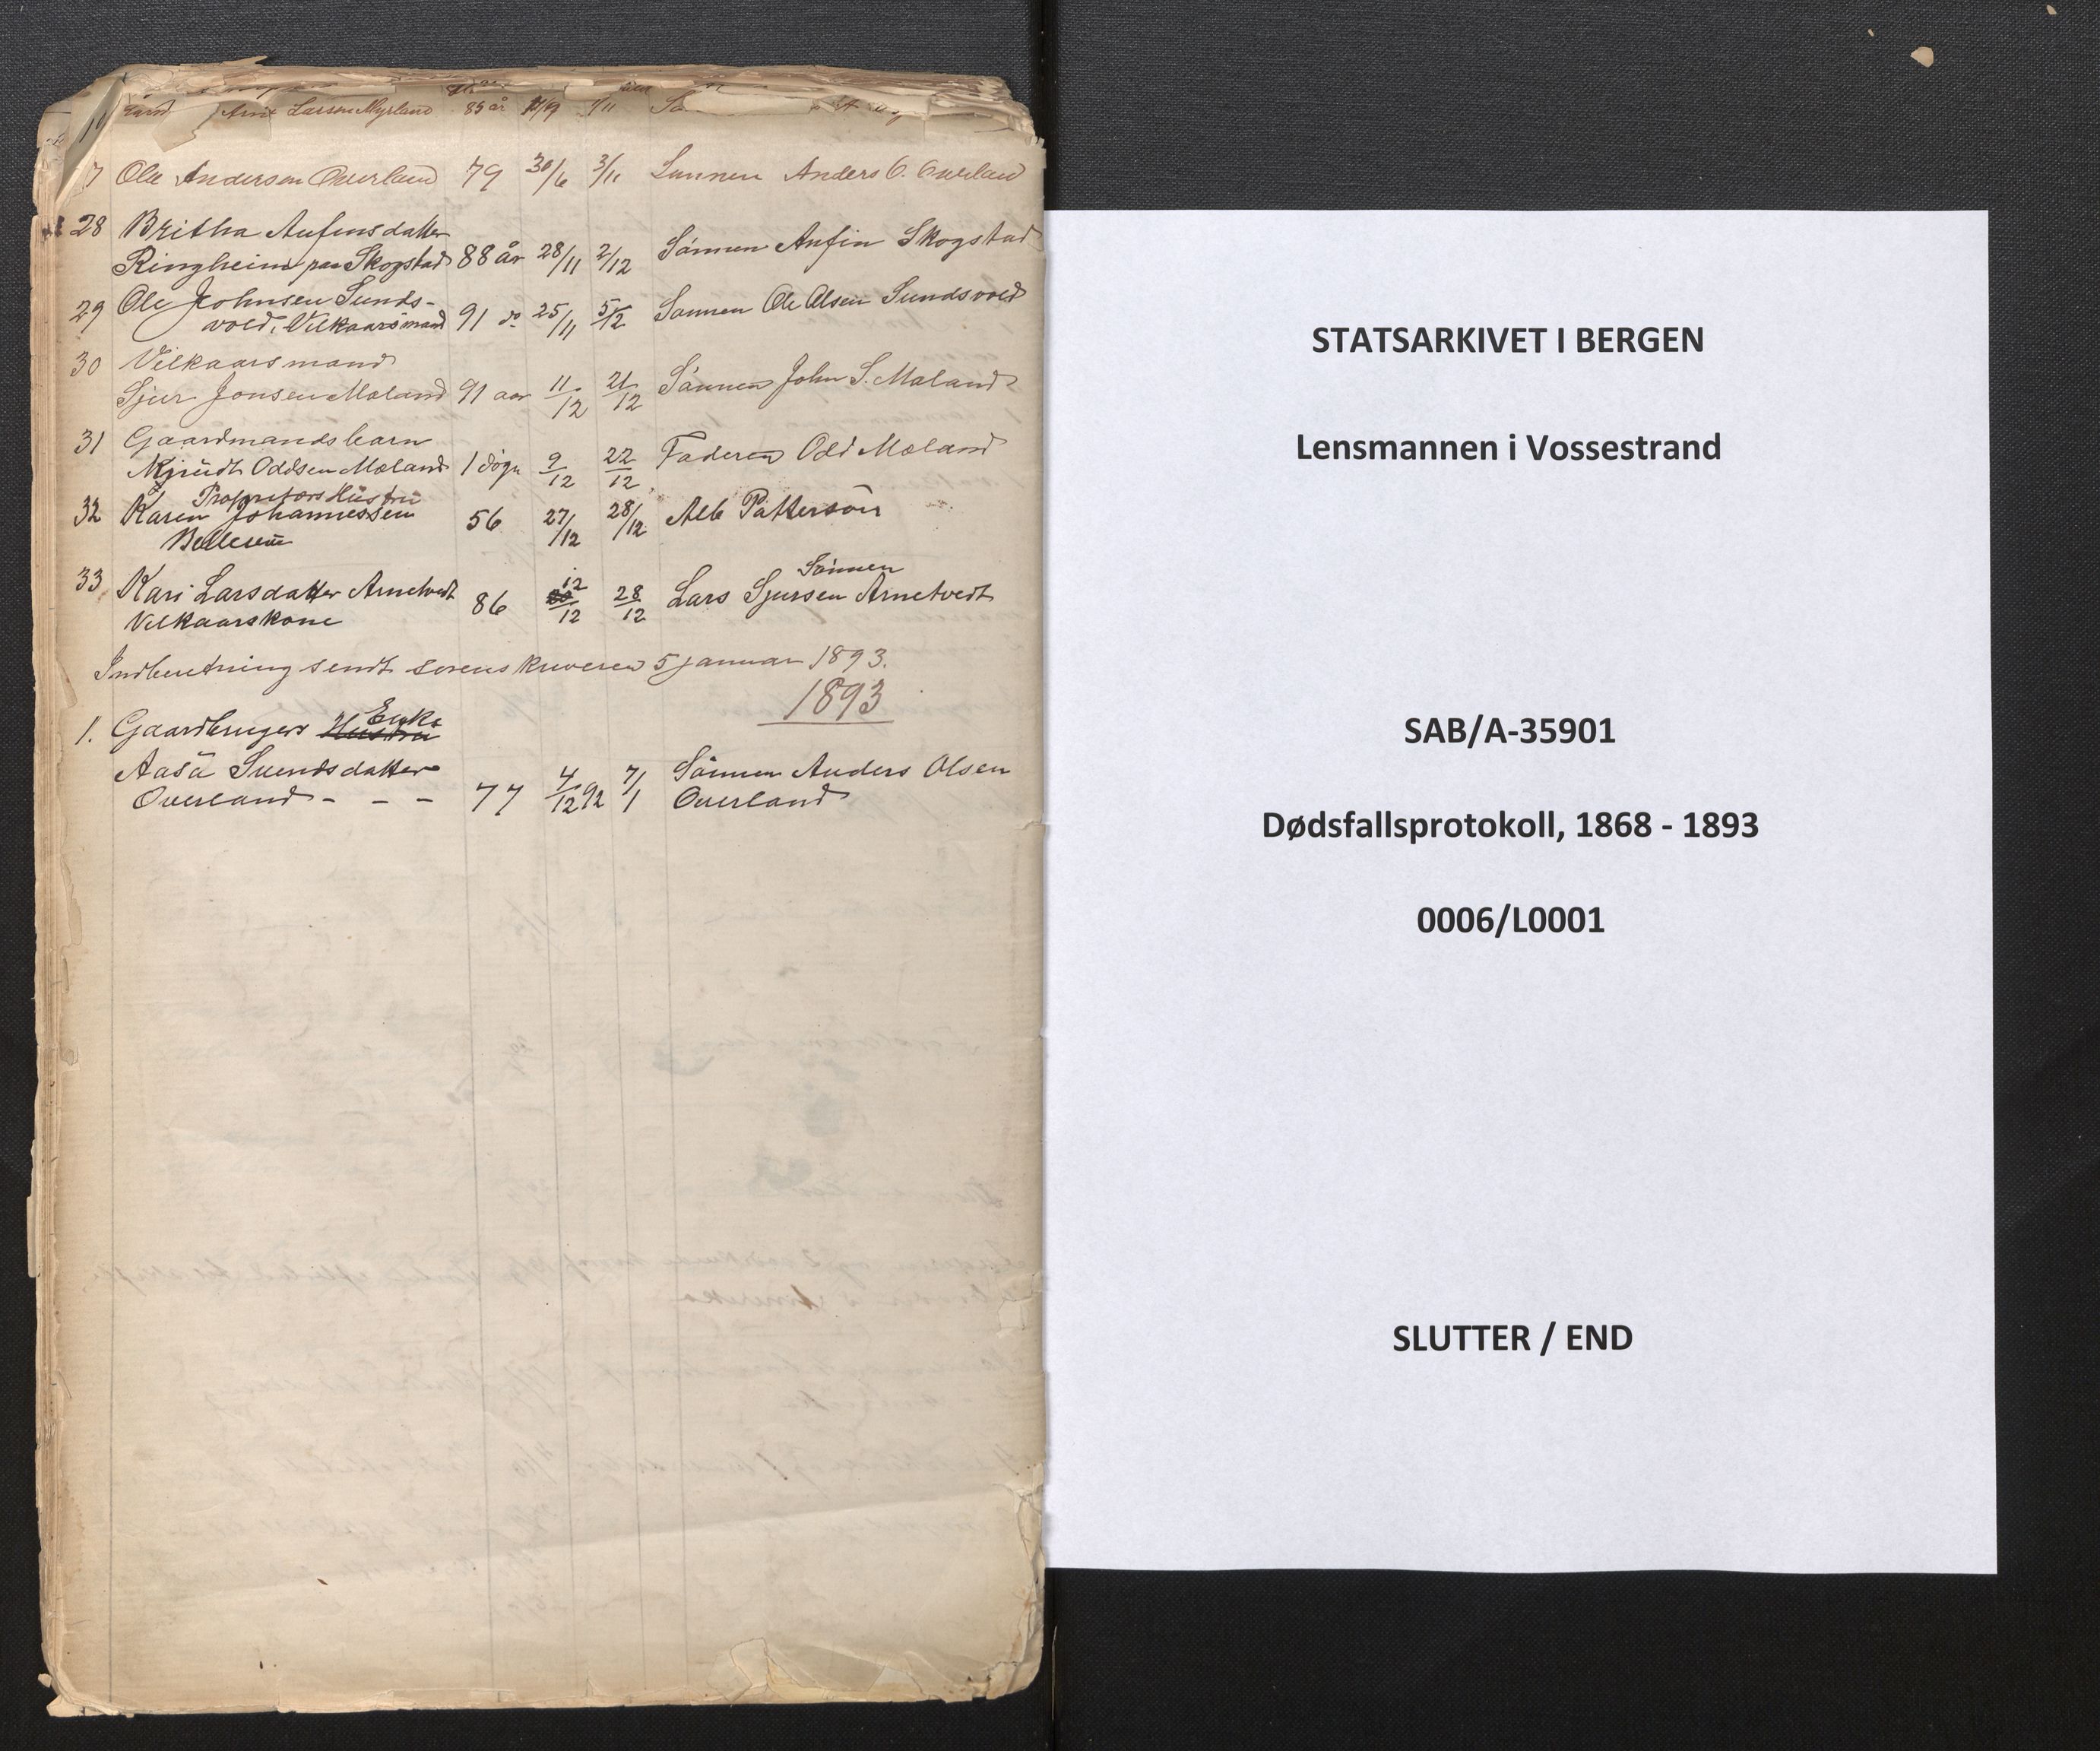 Larsen Myrland 85 år 1/11
7 Ole Andersen Overland 79 30/6 3/11 Sønnen Anders O. Overland
28 Britha Anfinsdatter
Ringheim paa Skogstad 88 år 28/11 2/12 Sønnen Anfin Skogstad
29 Ole Johnsen Sunds-
vold, Vilkaarsmand 91 do 25/11 5/12 Sønnen Ole Olsen Sundsvold
30 Vilkaarsmand
Sjur Jonsen Mæland 91 aar 11/12 21/12 Sønnen John S. Mæland
31 Gaardmandsbarn
Oddsen Mæland 1 døgn 9/12 22/12 Faderen Odd Mæland
Proprietørs Hustru
32 Karen Johannessen 56 27/12 28/12 Alb Patterson
33 Kari Larsdatter Arnetvedt 86 12/12 28/12 Sønnen
Lars Sjursen Arnetvedt
Vilkaarskone
Indberetning sendt sorenskriveren 5 januar 1893.
1893
1. Gaardbrugers Hustru Enke
Aasa Svendsdatter
Overland - - - 77 4/12 92 7/1 Sønnen Anders Olsen
Overland
STATSARKIVET I BERGEN
Lensmannen i Vossestrand
SAB/A-35901
Dødsfallsprotokoll, 1868 - 1893
0006/L0001
SLUTTER / END